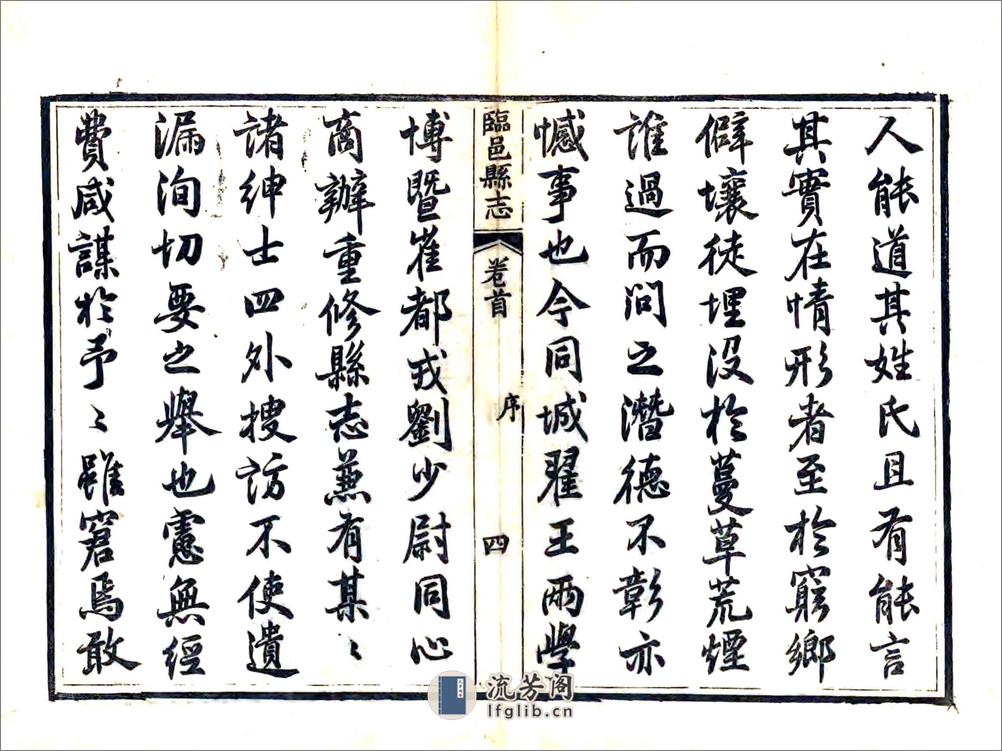 人能道其姓氏且有能言
其實在情形者至於窮鄉
僻壤徒埋没於蔓草荒煙
誰過而问之潛德不彰亦
憾事也今同城翟王兩學
臨邑縣志 卷首 序 四
博暨崔都戎劉少尉同心
商辦重修縣志兼有某〻
諸紳士四外搜訪不使遺
漏洵切要之舉也慮無經
費咸謀於予〻雖窘焉敢
流芳阁
lfglib.cn